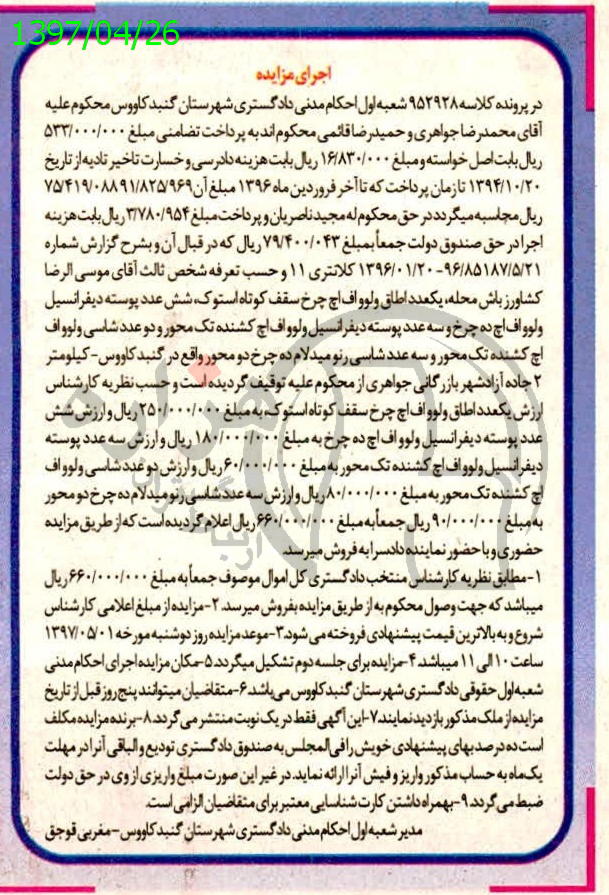 1397/04/26
اجرای مزایده
در پرونده کلاسه ۹۵۲۹۲۸ شعبه اول احکام مدنی دادگستری شهرستان گنبدکاووس محکوم علیه
آقای محمدرضا جواهری و حمیدرضا قائمی محکوم اند به پرداخت تضامنی مبلغ ۵۳۳/۰۰۰/۰۰۰
ریال بابت اصل خواسته و مبلغ ۱۶/۸۳۰/۰۰۰ ریال بابت هزینه دادرسی و خسارت تاخیر تادیه از تاریخ
۱۳۹۴/۱۰/۲۰ تا زمان پرداخت که تا آخر فروردین ماه ۱۳۹۶ مبلغ آن ۷۵/۴۱۹/۰۸۸۹۱/۸۲۵/۹۶۹
ریال محاسبه میگردد در حق محکوم له مجید ناصریان و پرداخت مبلغ ۳/۷۸۰/۹۵۴ ریال بابت هزینه
اجرا در حق صندوق دولت جمعاً بمبلغ ۷۹/۴۰۰/۰۴۳ ریال که در قبال آن و بشرح گزارش شماره
۹۶/۸۵۱۸۷/۵/۲۱-۱۳۹۶/۰۱/۲۰ کلانتری ۱۱ و حسب تعرفه شخص ثالث آقای موسی الرضا
کشاورز باش محله، یکعدد اطاق ولوو اف اچ چرخ سقف کوتاه استوک، شش عدد پوسته دیفرانسیل
ولوو اف اچ ده چرخ و سه عدد پوسته دیفرانسیل ولوو اف اچ کشنده تک محور و دو عدد شاسی ولوو اف
اچ کشنده تک محور و سه عدد شاسی رنو میدلام ده چرخ دو محور واقع در گنبدکاووس-کیلومتر
۲ جاده آزادشهر بازرگانی جواهری از محکوم علیه توقیف گردیده است و حسب نظریه کارشناس
ارزش یکعدد اطاق ولوو اف اچ چرخ سقف کوتاه استوک، به مبلغ ۲۵۰/۰۰۰/۰۰۰ ریال و ارزش شش
عدد پوسته دیفرانسیل ولوو اف اچ ده چرخ به مبلغ ۱۸۰/۰۰۰/۰۰۰ ریال و ارزش سه عدد پوسته
دیفرانسیل ولوو اف اچ کشنده تک محور به مبلغ ۶۰/۰۰۰/۰۰۰ ریال و ارزش دو عدد شاسی ولوو اف
اچ کشنده تک محور به مبلغ ۸۰/۰۰۰/۰۰۰ ریال و ارزش سه عدد شاسی رنو میدلام ده چرخ دو محور
به مبلغ ۹۰/۰۰۰/۰۰۰ ریال جمعاً به مبلغ ۶۶۰/۰۰۰/۰۰۰ ریال اعلام گردیده است که از طریق مزایده
حضوری و با حضور نماینده دادسرا به فروش میرسد.
۱-مطابق نظریه کارشناس منتخب دادگستری کل اموال موصوف جمعاً به مبلغ ۶۶۰/۰۰۰/۰۰۰ ریال
میباشد که جهت وصول محکوم به از طریق مزایده بفروش میرسد. ۲-مزایده از مبلغ اعلامی کارشناس
شروع و به بالاترین قیمت پیشنهادی فروخته می شود. ۳-موعد مزایده روز دوشنبه مورخه ۱۳۹۷/۰۵/۰۱
ساعت ۱۰ الی ۱۱ میباشد. ۴-مزایده برای جلسه دوم تشکیل میگردد. ۵-مکان مزایده اجرای احکام مدنی
شعبه اول حقوقی دادگستری شهرستان گنبدکاووس می باشد. ۶-متقاضیان میتوانند پنج روز قبل از تاریخ
مزایده از ملک مذکور بازدید نمایند. ۷-این آگهی فقط در یک نوبت منتشر می گردد. ۸-برنده مزایده مکلف
است ده درصد بهای پیشنهادی خویش را فی المجلس به صندوق دادگستری تودیع و الباقی آنرا در مهلت
یک ماه به حساب مذکور واریز و فیش آنرا ارائه نماید. در غیر این صورت مبلغ واریزی از وی در حق دولت
ضبط می گردد. ۹-بهمراه داشتن کارت شناسایی معتبر برای متقاضیان الزامی است.
مدیر شعبه اول احکام مدنی دادگستری شهرستان گنبدکاووس-مغربی قوجق